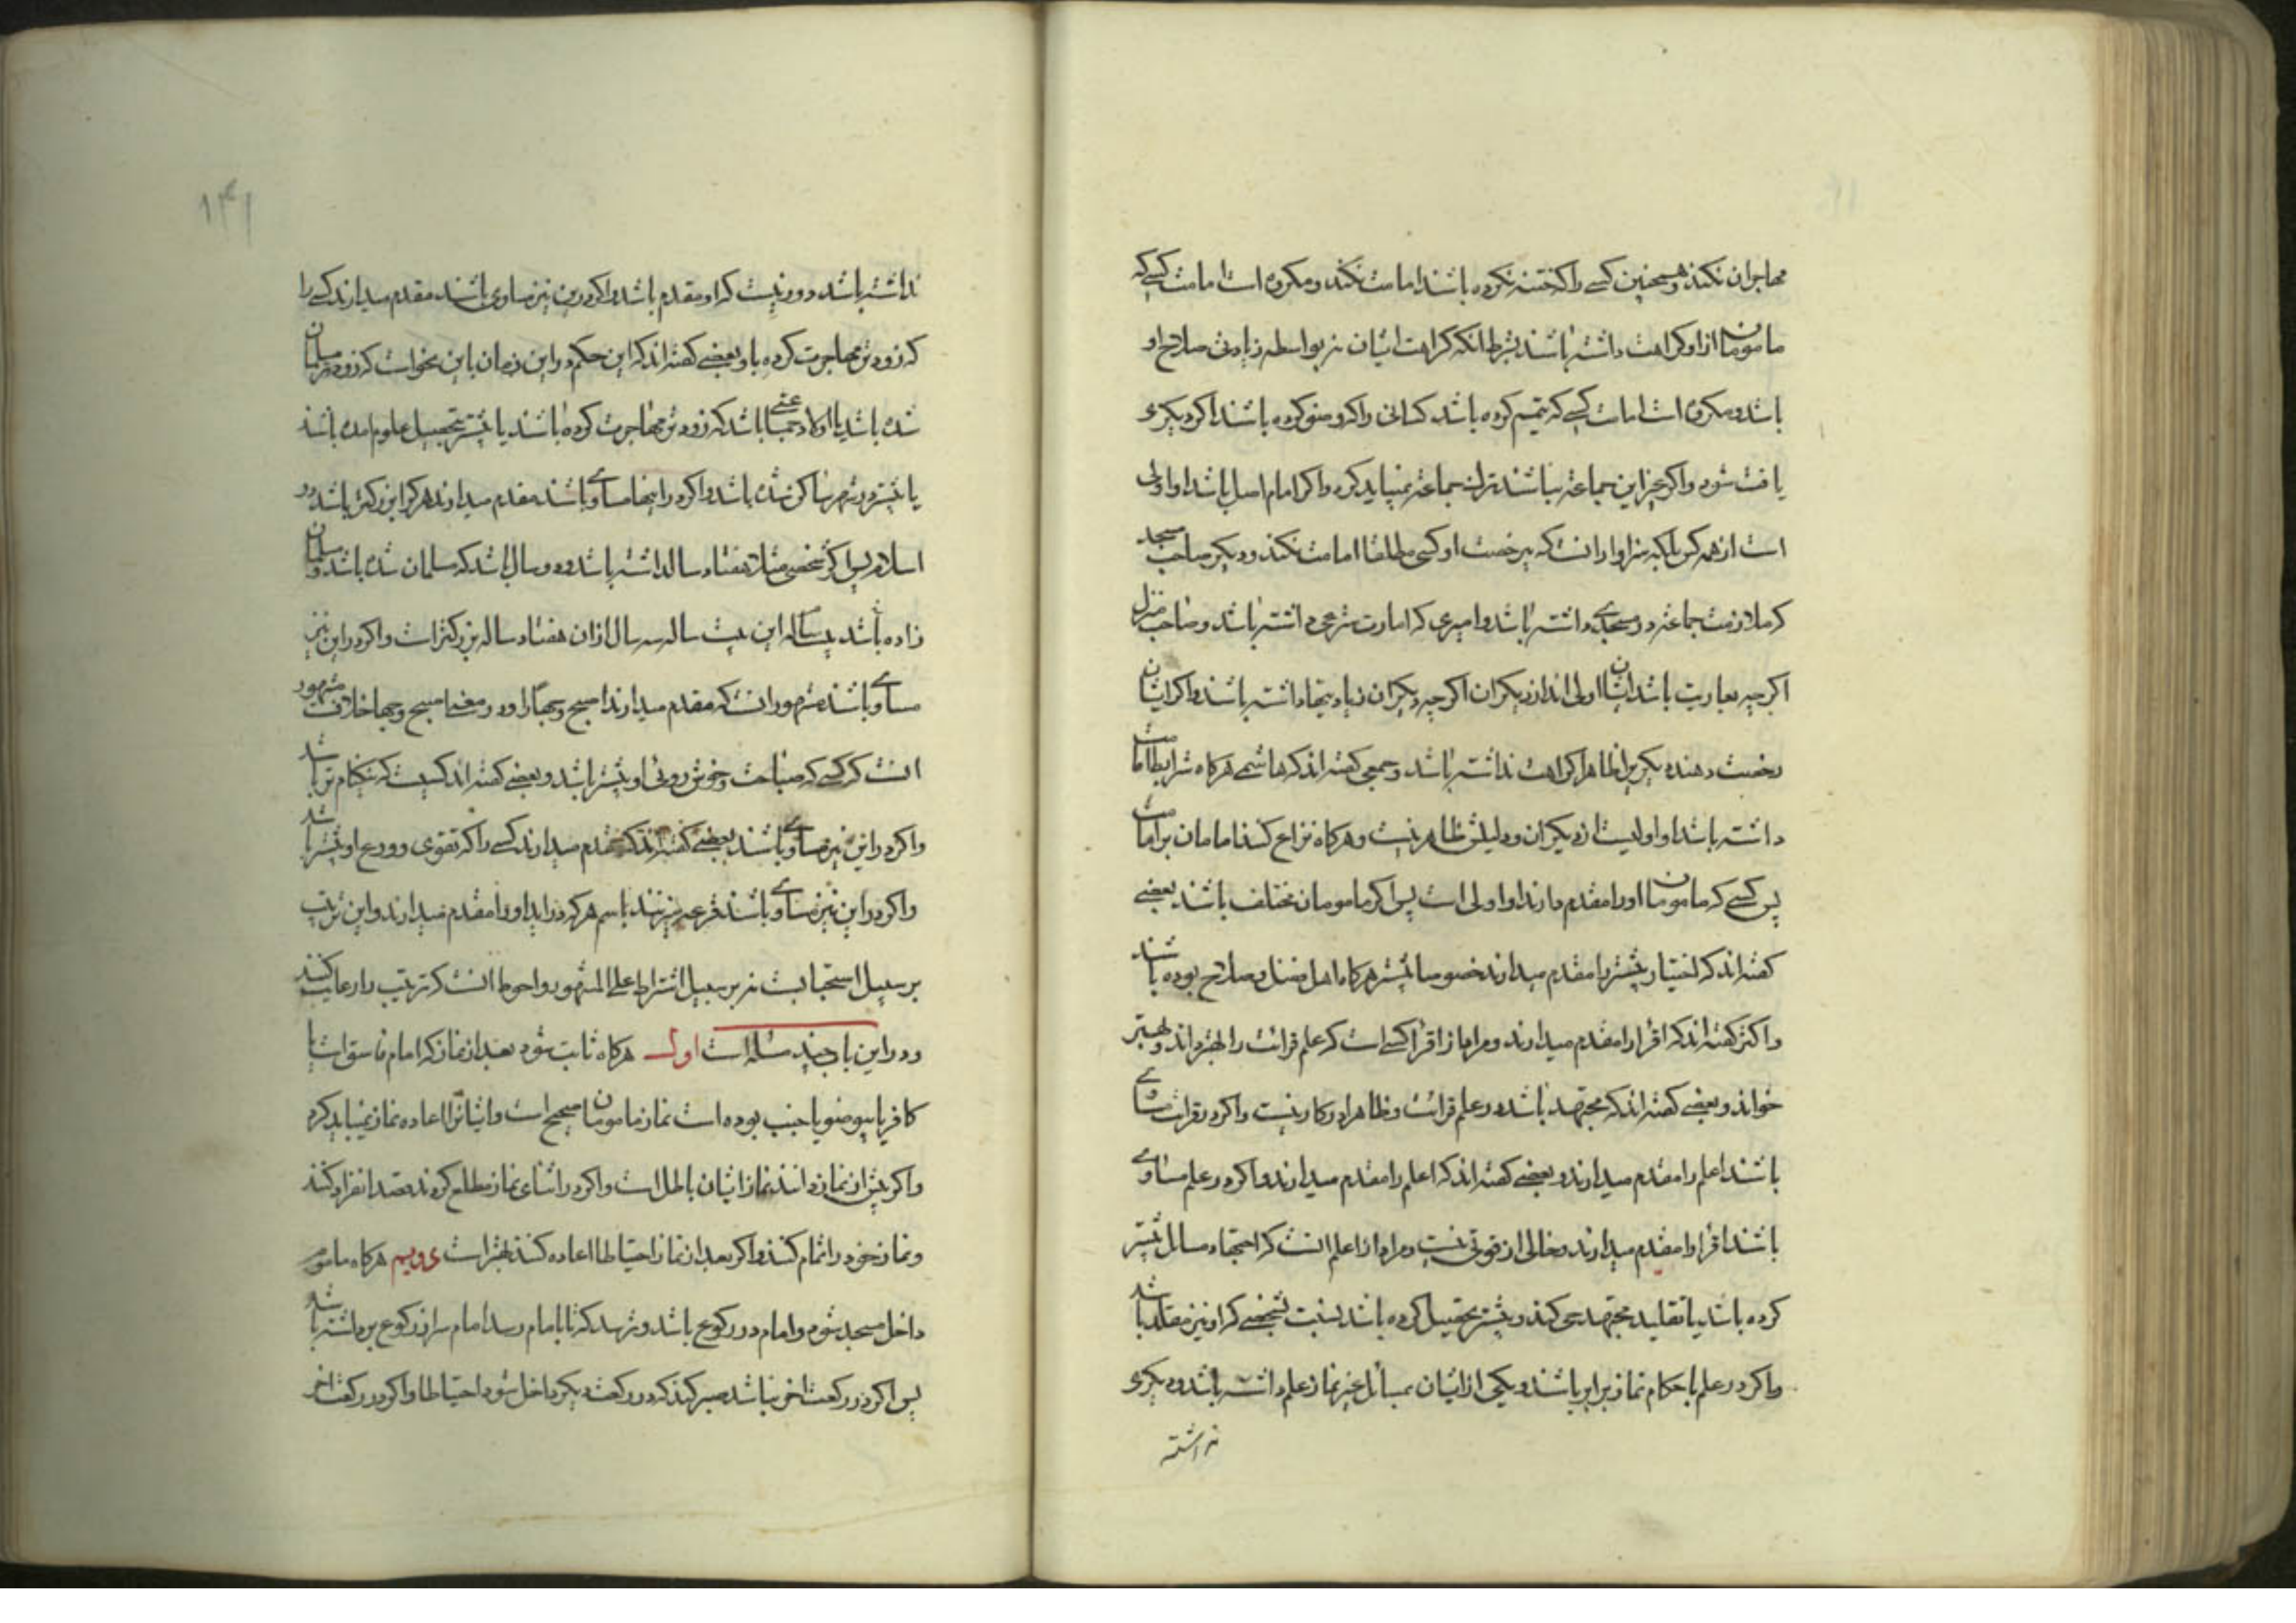 مهاجران نکند و همچنین کسی را که ختنه نکرده باشند امامت نکند و مکروه است امامت کسی که
مامومان از او کراهت داشته باشند بشرط انکه کراهت ایشان نه بواسطه زیادتی صلاح او
باشد و مکروه است امامت کسی که تیمم کرده باشد کسانی را که وضو کرده باشند اگر دیگری
یافت شود و اگر جز این جماعة نباشند ترک جماعة نمیباید کرد و اگر امام اصل باشد او اولی
است از همه کس بلکه سزاوار انست که بی رخصت او کسی مطلقا امامت نکند و دیگر صاحب مسجد
که ملازمت جماعة در مسجدی داشته باشد و امیری که امارت شرعی داشته باشد و صاحب منزل
اگرچه بعاریت باشد ایشان اولی اند از دیگران اگرچه دیگران زیادتیها داشته باشند و اگر ایشان
رخصت دهند دیگریرا ظاهرا کراهت نداشته باشد و جمعی گفته اند که هاشمی هرگاه شرایط امامت
داشته باشد او اولیست از دیگران و دلیلش ظاهر نیست و هرگاه نزاع کنند امامان بر امامت
پس کسی که مامومان او را مقدم دارند او اولی است پس اگر مامومان مختلف باشند بعضی
گفته اند که اختیار بیشتر را مقدم میدارند خصوصا بیشتر هرگاه اهل فضل و صلاح بوده باشند
و اکثر گفته اند که اقرا را مقدم میدارند و مراد از اقرا کسی است که علم قرائت را بهتر داند و بهتر
خواند و بعضی گفته اند که مجتهد باشد در علم قرائت و ظاهرا در کار نیست و اگر در قرائت مساوی
باشند اعلم را مقدم میدارند و بعضی گفته اند که اعلم را مقدم میدارند و اگر در علم مساوی
باشند اقرا را مقدم میدارند و خالی از قوتی نیست و مراد از اعلم انست که اجتهاد مسائل بیشتر
کرده باشد یا تقلید مجتهد حی کند و بیشتر تحصیل کرده باشد نسبت بشخصی که او نیز مقلد باشد
و اگر در علم باحکام نماز برابر باشند و یکی از ایشان بمسائل غیر نماز علم داشته باشد و دیگری
نداشته
۱۴۱
نداشته باشد دور نیست که او مقدم باشد و اگر در این نیز مساوی باشند مقدم میدارند کسی را
که زودتر مهاجرت کرده باشد و بعضی گفته اند که این حکم در این زمان باین نحواست که زودتر مسلمان
شده باشد یا اولاد جمعی باشد که زودتر مهاجرت کرده باشند یا بیشتر بتحصیل علوم امده باشد
یا بیشتر در شهر ساکن شده باشد و اگر در اینها مساوی باشند مقدم میدارند هر کرا بزرگتر باشد در
اسلام پس اگر شخصی مثلا هفتاد سال داشته باشد و دو سال باشد که مسلمان شده باشد و مسلمان
زاده باشد بیست ساله این بیست ساله سه سال از ان هفتاد ساله بزرگتر است و اگر در این نیز
مساوی باشند مشهور انست که مقدم میدارند اصبح وجها را و در معنی اصبح وجها خلافست مشهور
انست که کسی که صباحت و خوش روئی او بیشتر باشد و بعضی گفته اند کسیست که نیکنام تر باشد
و اگر در این نیز مساوی باشند بعضی گفته اند که مقدم میدارند کسی را که تقوی و ورع او بیشتر باشد
و اگر در این نیز مساوی باشند قرعه میزنند باسم هر که درآید او را مقدم میدارند و این ترتیب
بر سبیل استحبابست نه بر سبیل اشتراط علی المشهور و احوط انست که ترتیب را رعایت کنند
و در این باب چند مسئله است اول هرگاه ثابت شود بعد از نماز که امام فاسق است یا
کافر یا بیوضو یا جنب بوده است نماز مامومان صحیح است و ایشانرا اعاده نماز نمیباید کرد
و اگر پیش از نماز دانند نماز ایشان باطل است و اگر در اثنای نماز مطلع گردند قصد انفراد کنند
و نماز خود را تمام کنند و اگر بعد از نماز احتیاطا اعاده کنند بهتر است دویم هرگاه ماموم
داخل مسجد شود و امام در رکوع باشد و ترسد که تا بامام رسد امام سر از رکوع برداشته باشد
پس اگر در رکعت اخر نباشد صبر کند که در رکعت دیگر داخل شود احتیاطا و اگر در رکعت اخر